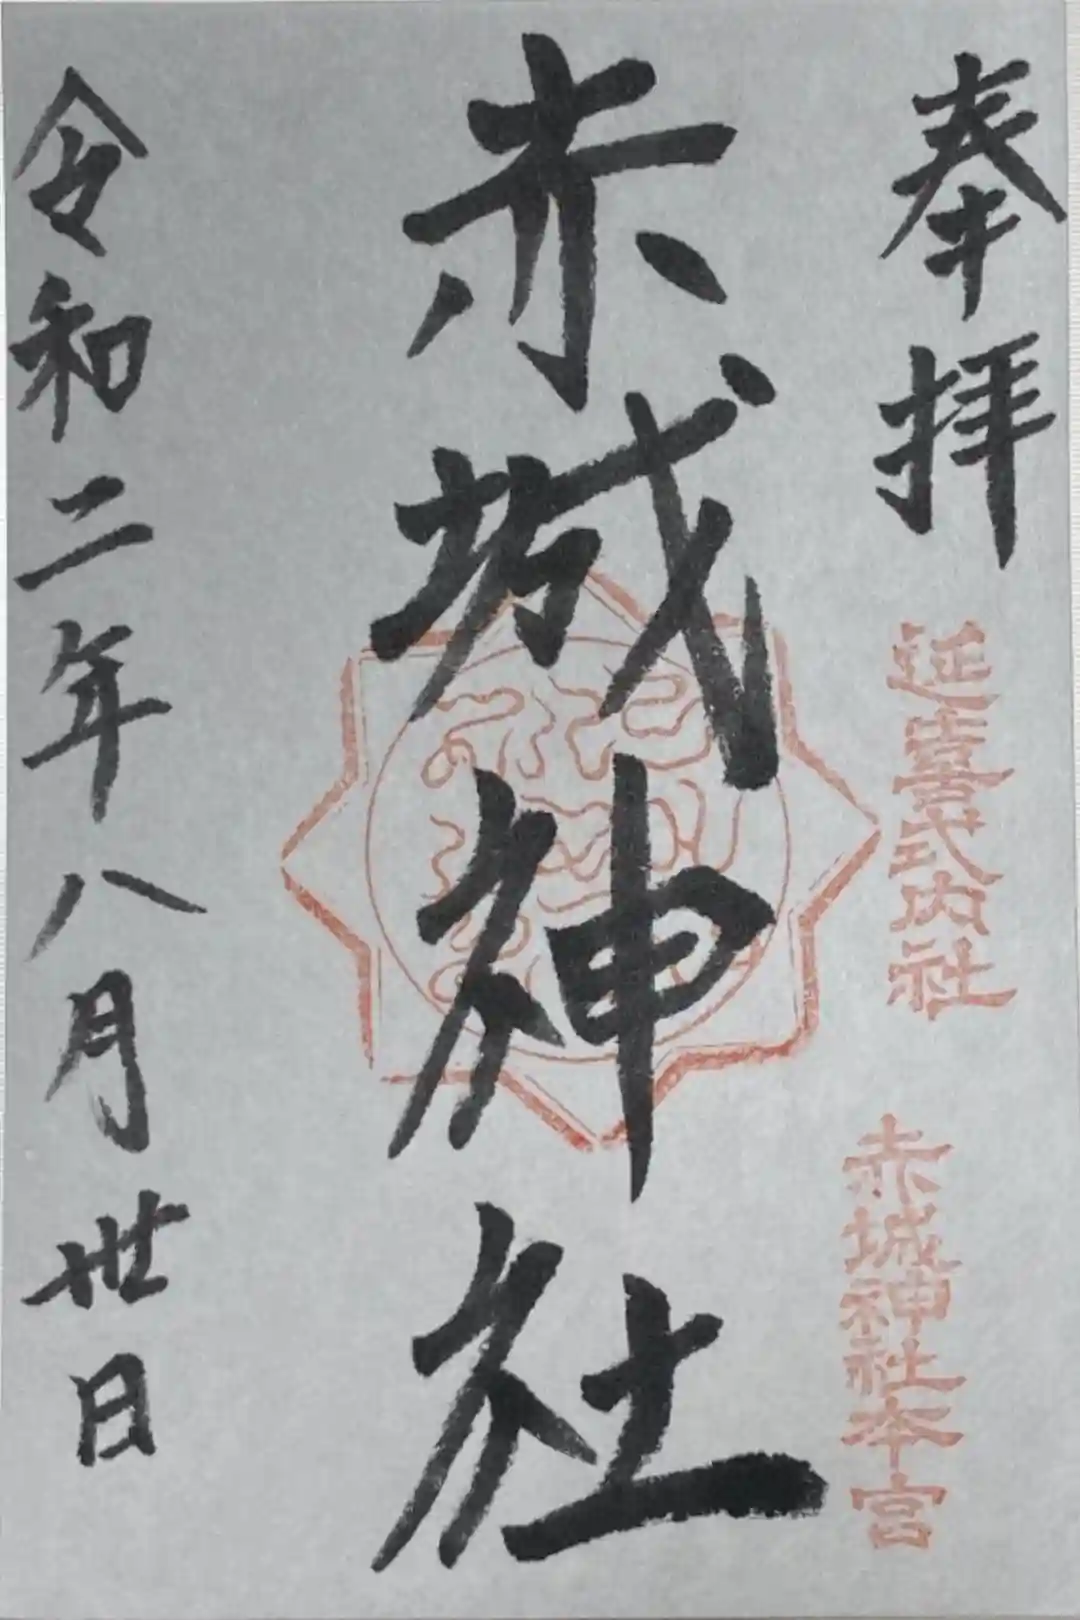 奉拝
延喜式内社
赤城神社本宮
赤城神社
令和二年八月丗日